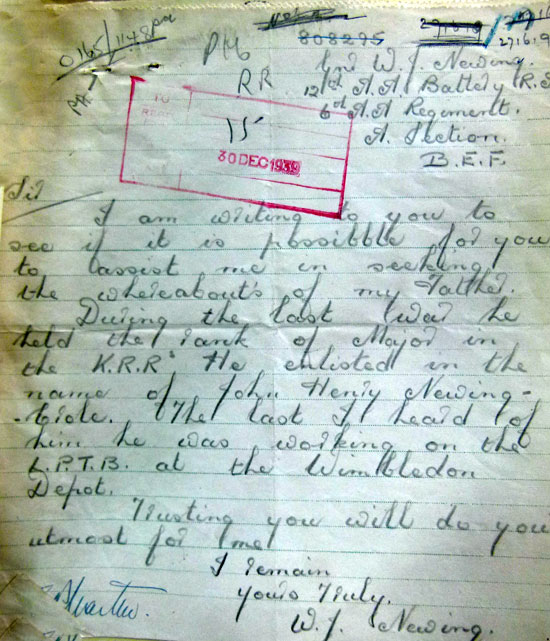 0165/1148
808295
271619
PM6
RR
PR
Gnr W. J. Newing.
12th A.A. Battery (R.S
6th A.A Regiment.
A. Section.
B.E.F.
TO
15
30 DEC 1939
Sir
I am writing to you to
see if it is possibble for you
to assist me in seeking
the whereabout's of my Father.
During the last War he
held the rank of Major in
the K.R.R's He enlisted in the
name of John Henry Newing-
-bide. The last I heard of
him he was working on the
L.P.T.B. at the Wimbledon
Depot.
Trusting you will do you
utmost for me
I remain
yours Truly.
W. J. Newing.